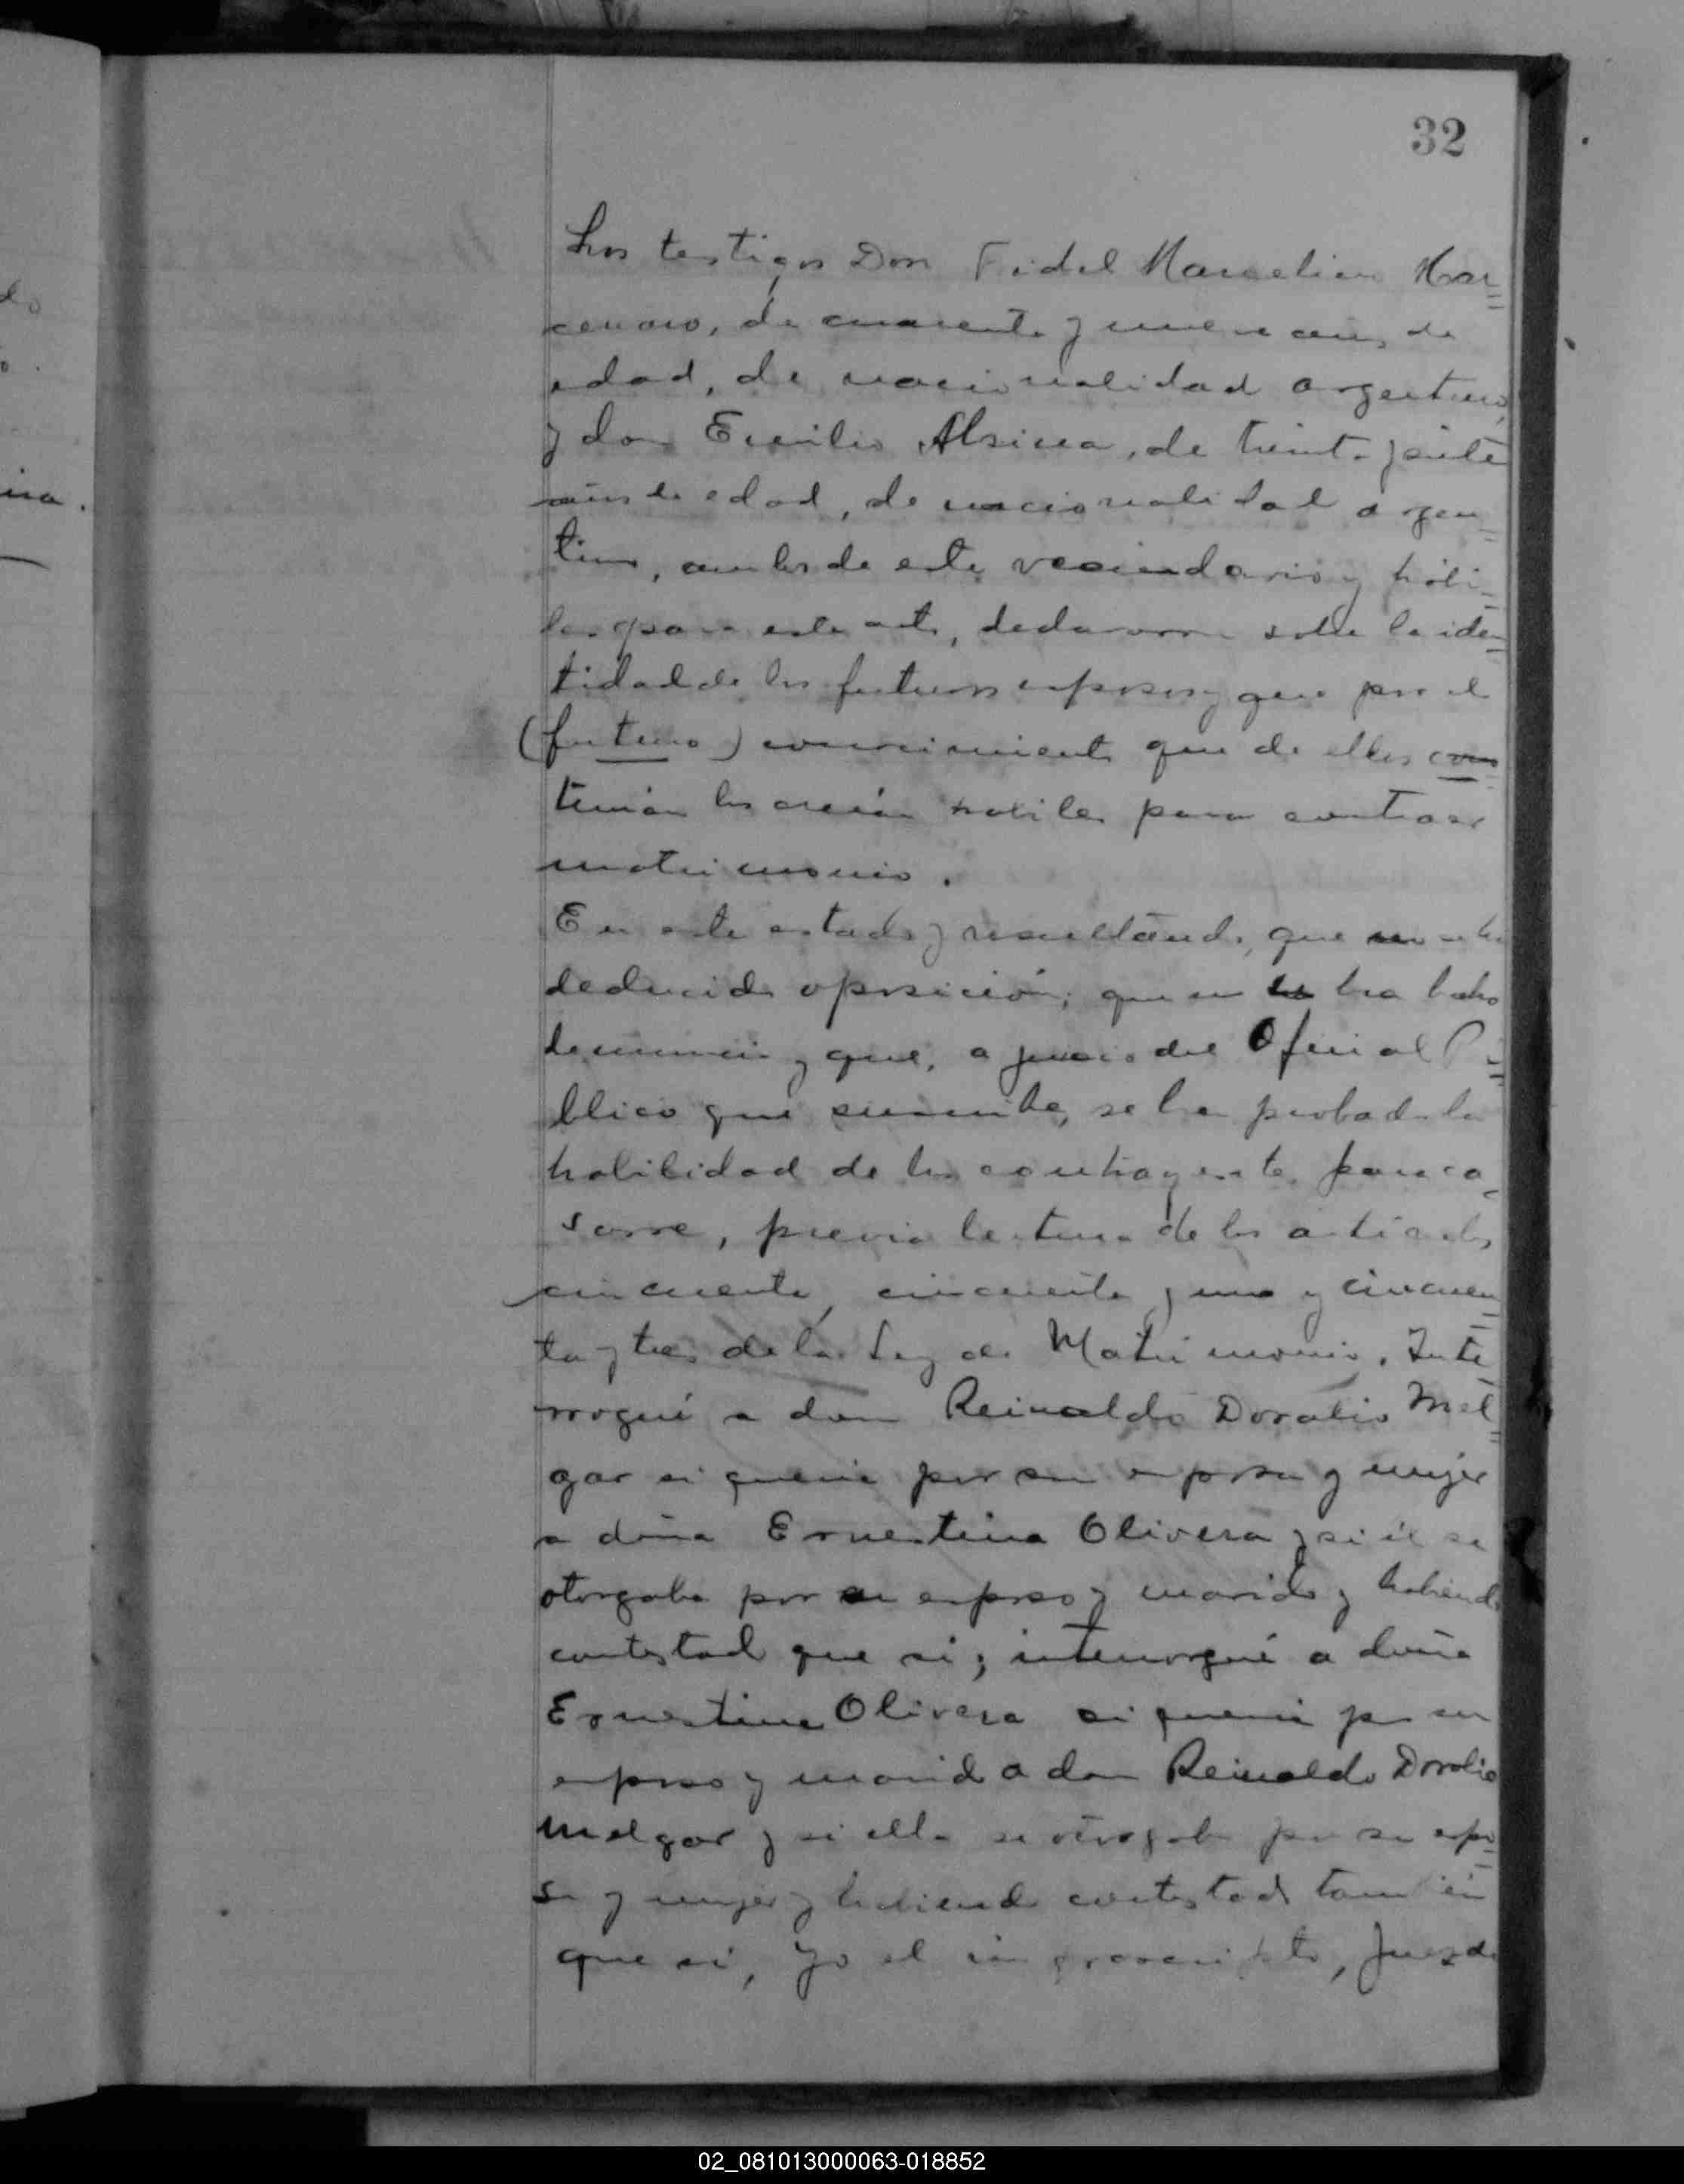 32
Los testigos Don Fidel Marcelino Mar=
cenaro, de cuarenta y nueve años de
edad, de nacionalidad argentino,
y don Emilio Alsina, de treinta y siete
años de edad, de nacionalidad argen=
tino, ambos de este vecindario y hábi=
les para este acto, declararon sobre la iden=
tidad de los futuros esposos y que por el
(futuro) conocimiento que de ellos con
tenían los creían habiles para contraer
matrimonio.
En este estado y resultando, que no se ha
deducido oposición; que no ha habido
denuncia y que, a juicio del Oficial Pú=
blico que suscribe, se ha probado la
habilidad de los contrayentes para ca-
sarse, previa lectura de los artículos
cincuenta, cincuenta y uno y cincuen=
ta y tres de la Ley de Matrimonio, Inte=
rrogué a don Reinaldo Doralio Mel=
gar si quería por su esposa y mujer
a doña Ernestina Olivera y si él se
otorgaba por su esposo y marido y habiendo
contestado que si; interrogué a doña
Ernestina Olivera si quería por su
esposo y marido a don Reinaldo Doralio
Melgar y si ella se otorgaba por su espo=
sa y mujer y habiendo contestado también
que si, Yo el infrascripto, Juez de
02_081013000063-018852